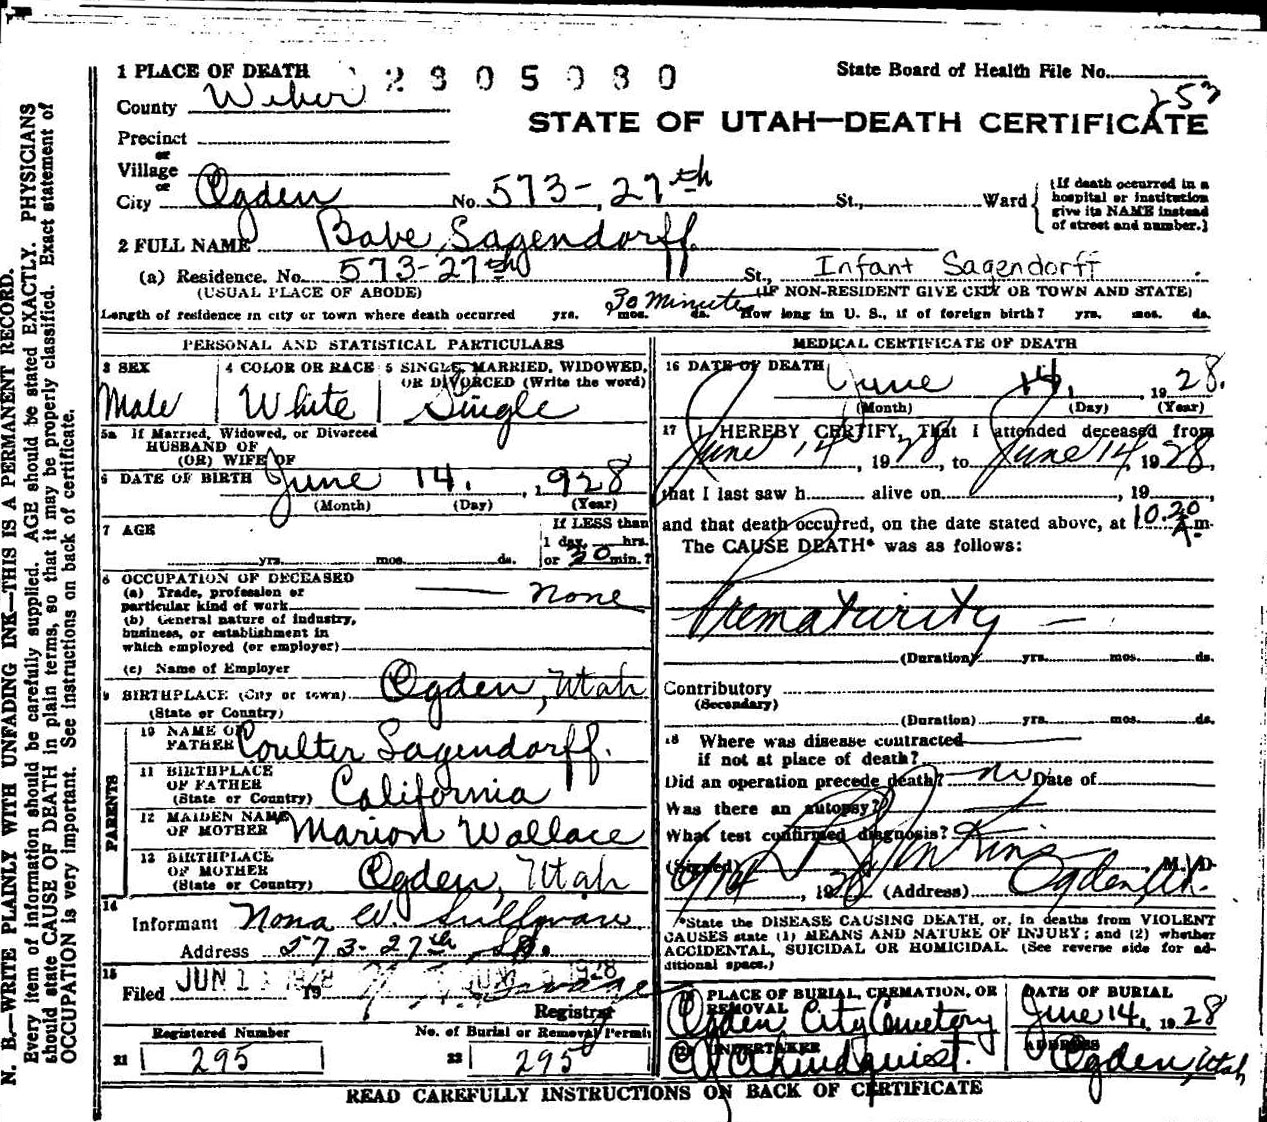 1 PLACE OF DEATH 2 8 0 5 0 8 0 State Board of Health File No.
253
County Weber
STATE OF UTAH—DEATH CERTIFICATE
Precinct
or
Village
or
City Ogden No. 573-27th St., Ward (If death occurred in a hospital or institution give its NAME instead of street and number.)
2 FULL NAME Babe Sagendorff
(a) Residence. No. 573-27th St., Infant Sagendorff
(USUAL PLACE OF ABODE) (IF NON-RESIDENT GIVE CITY OR TOWN AND STATE)
Length of residence in city or town where death occurred yrs. mos. ds. 30 Minutes How long in U. S., if of foreign birth? yrs. mos. ds.
PERSONAL AND STATISTICAL PARTICULARS
3 SEX 4 COLOR OR RACE 5 SINGLE, MARRIED, WIDOWED, OR DIVORCED (Write the word)
Male White Single
5a If Married, Widowed, or Divorced
HUSBAND OF
(OR) WIFE OF
6 DATE OF BIRTH June 14, 1928
(Month) (Day) (Year)
7 AGE yrs. mos. ds. If LESS than 1 day hrs. or 30 min.?
8 OCCUPATION OF DECEASED
(a) Trade, profession or
particular kind of work none
(b) General nature of industry,
business, or establishment in
which employed (or employer)
(c) Name of Employer
9 BIRTHPLACE (City or town) Ogden, Utah
(State or Country)
PARENTS
10 NAME OF FATHER Coulter Sagendorff.
11 BIRTHPLACE OF FATHER (State or Country) California
12 MAIDEN NAME OF MOTHER Marion Wallace
13 BIRTHPLACE OF MOTHER (State or Country) Ogden, Utah
14
Informant Nona W.
Address 573-27th St.
15
Filed JUN 1 1928 19
Registrar
Registered Number No. of Burial or Removal Permit
21 295 22 295
MEDICAL CERTIFICATE OF DEATH
16 DATE OF DEATH June 14, 1928.
(Month) (Day) (Year)
17 I HEREBY CERTIFY, That I attended deceased from
June 14, 1928, to June 14, 1928,
that I last saw h alive on , 19 ,
and that death occurred, on the date stated above, at 10.20 A.m.
The CAUSE DEATH* was as follows:
Prematurity —
(Duration) yrs. mos. ds.
Contributory
(Secondary)
(Duration) yrs. mos. ds.
18 Where was disease contracted
if not at place of death?
Did an operation precede death? no Date of
Was there an autopsy?
What test confirmed diagnosis?
(Signed) Jenkins M. D.
6/14, 1928 (Address) Ogden, Ut.
*State the DISEASE CAUSING DEATH, or, in deaths from VIOLENT
CAUSES state (1) MEANS AND NATURE OF INJURY; and (2) whether
ACCIDENTAL, SUICIDAL OR HOMICIDAL. (See reverse side for ad-
ditional space.)
19 PLACE OF BURIAL, CREMATION, OR REMOVAL DATE OF BURIAL
Ogden City Cemetery June 14, 1928
20 UNDERTAKER ADDRESS
Lindquist. Ogden, Utah
READ CAREFULLY INSTRUCTIONS ON BACK OF CERTIFICATE
N. B.—WRITE PLAINLY WITH UNFADING INK—THIS IS A PERMANENT RECORD.
Every item of information should be carefully supplied. AGE should be stated EXACTLY. PHYSICIANS
should state CAUSE OF DEATH in plain terms, so that it may be properly classified. Exact statement of
OCCUPATION is very important. See instructions on back of certificate.